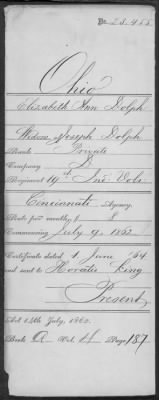 No 23,455
Ohio
Elizabeth Ann Dolph
Widow Joseph Dolph
Rank Private
Company
Regiment 19th Ind Vols
Cincinnati Agency.
Rate per month, $ 8
Commencing July 9, 1862
Certificate dated 4 June '64
and sent to Horatio King
Present
Act 14th July, 1862.
Book Vol. Page 187